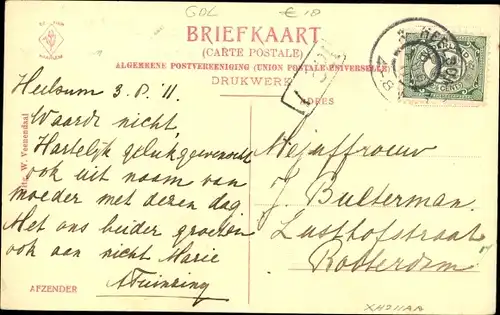 GDL € 10
BRIEFKAART
(CARTE POSTALE)
ALGEMEENE POSTVEREENIGING (UNION POSTALE UNIVERSELLE)
DRUKWERK
ADRES
Heelsum 3.8.'11
Waarde nicht,
Hartelijk gelukgewenscht
ook uit naam van
moeder met dezen dag
Met ons beider groeten
ook aan nicht Marie
Mejuffrouw
J. Bulterman.
Lusthofstraat
Rotterdam
W. Veenendaal
AFZENDER